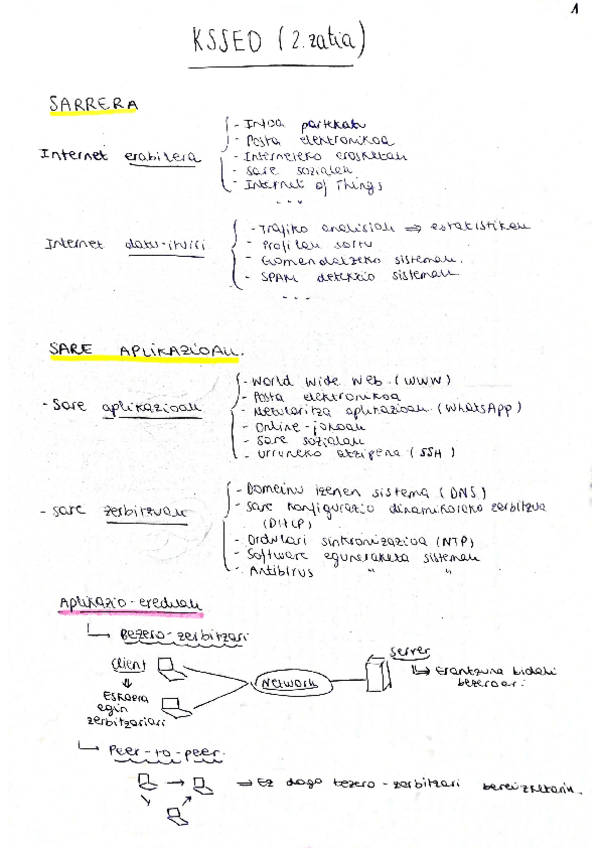 1
KSSEO (2. zatia)
SARRERA
Internet erabilera
- Infoa partekatu
- Posta elektronikoa
- Interneteko erosketak
- Sare sozialak
- Internet of Things
...
Internet datu-iturri
- Trafiko analisiak ⇒ estatistikak
- Profilak sortu
- Gomendatzeko sistemak.
- SPAM detekzio sistemak
...
SARE APLIKAZIOAK.
- Sare aplikazioak
- World Wide Web (WWW)
- Posta elektronikoa
- Mezularitza aplikazioak (WhatsApp)
- Online-jokoak
- Sare sozialak
- Urruneko atzipena (SSH)
- Sare zerbitzuak
- Domeinu izenen sistema (DNS)
- Sare konfigurazio dinamikoreko zerbitzua
(DHCP)
- Ordulari sinkronizazioa (NTP)
- Software eguneraketa sistemak
- Antibirus " "
Aplikazio-ereduak
Bezero-zerbitzari
Client
⇓
Eskaera
egin
zerbitzariari
Network
Server
↳ Erantzuna bidali
bezeroari.
Peer-to-peer.
⇒ Ez dago bezero-zerbitzari bereizketarik.